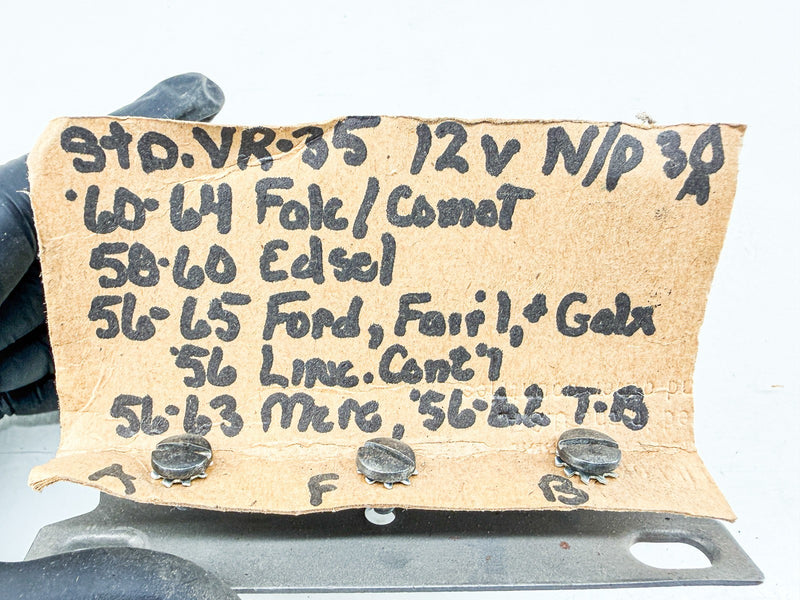 StD. VR-35 12v N/P 30A
'60-64 Falc/Comet
58-60 Edsel
56-65 Ford, Fair'l, + Galx
'56 Linc. Cont'l
56-63 Merc, '56-62 T-B
A F B